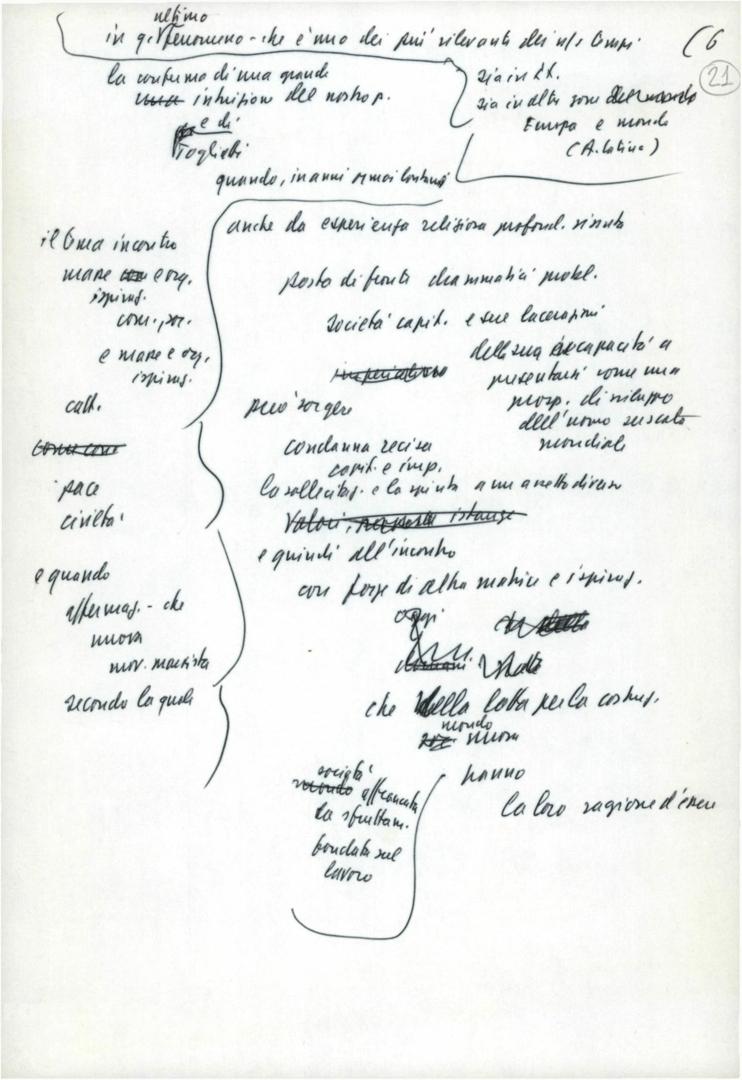 ultimo
in q. fenomeno - che è uno dei più rilevanti dei n/s tempi
(6
21
la conferma di una grande
una intuizione del nostro p.
e di
Togliatti
sia in It.
sia in altre zone del mondo
Europa e mondo
(A. Latina)
quando, in anni ormai lontani
il tema incontro
masse con e org.
ispiraz.
com., soc.
e masse e org.
ispiraz.
catt.
come come
pace
civiltà
e quando
affermaz. - che
nuova
mov. marxista
secondo la quale
anche da esperienza religiosa profond. vissuta
posta di fronte drammatici probl.
società capit. e sue lacerazioni
imperialismo
della sua incapacità a
presentarsi come una
prosp. di sviluppo
dell'uomo su scala
mondiale
può sorgere
condanna recisa
capit. e imp.
la sollecitaz. e la spinta a un assetto diverso
valori, istanze
e quindi all'incontro
con forze di altra matrice e ispiraz.
oggi
domani
che della lotta per la costruz.
mondo
nuova
società
mondo affrancata
da sfruttam.
fondata sul
lavoro
hanno
la loro ragione d'essere